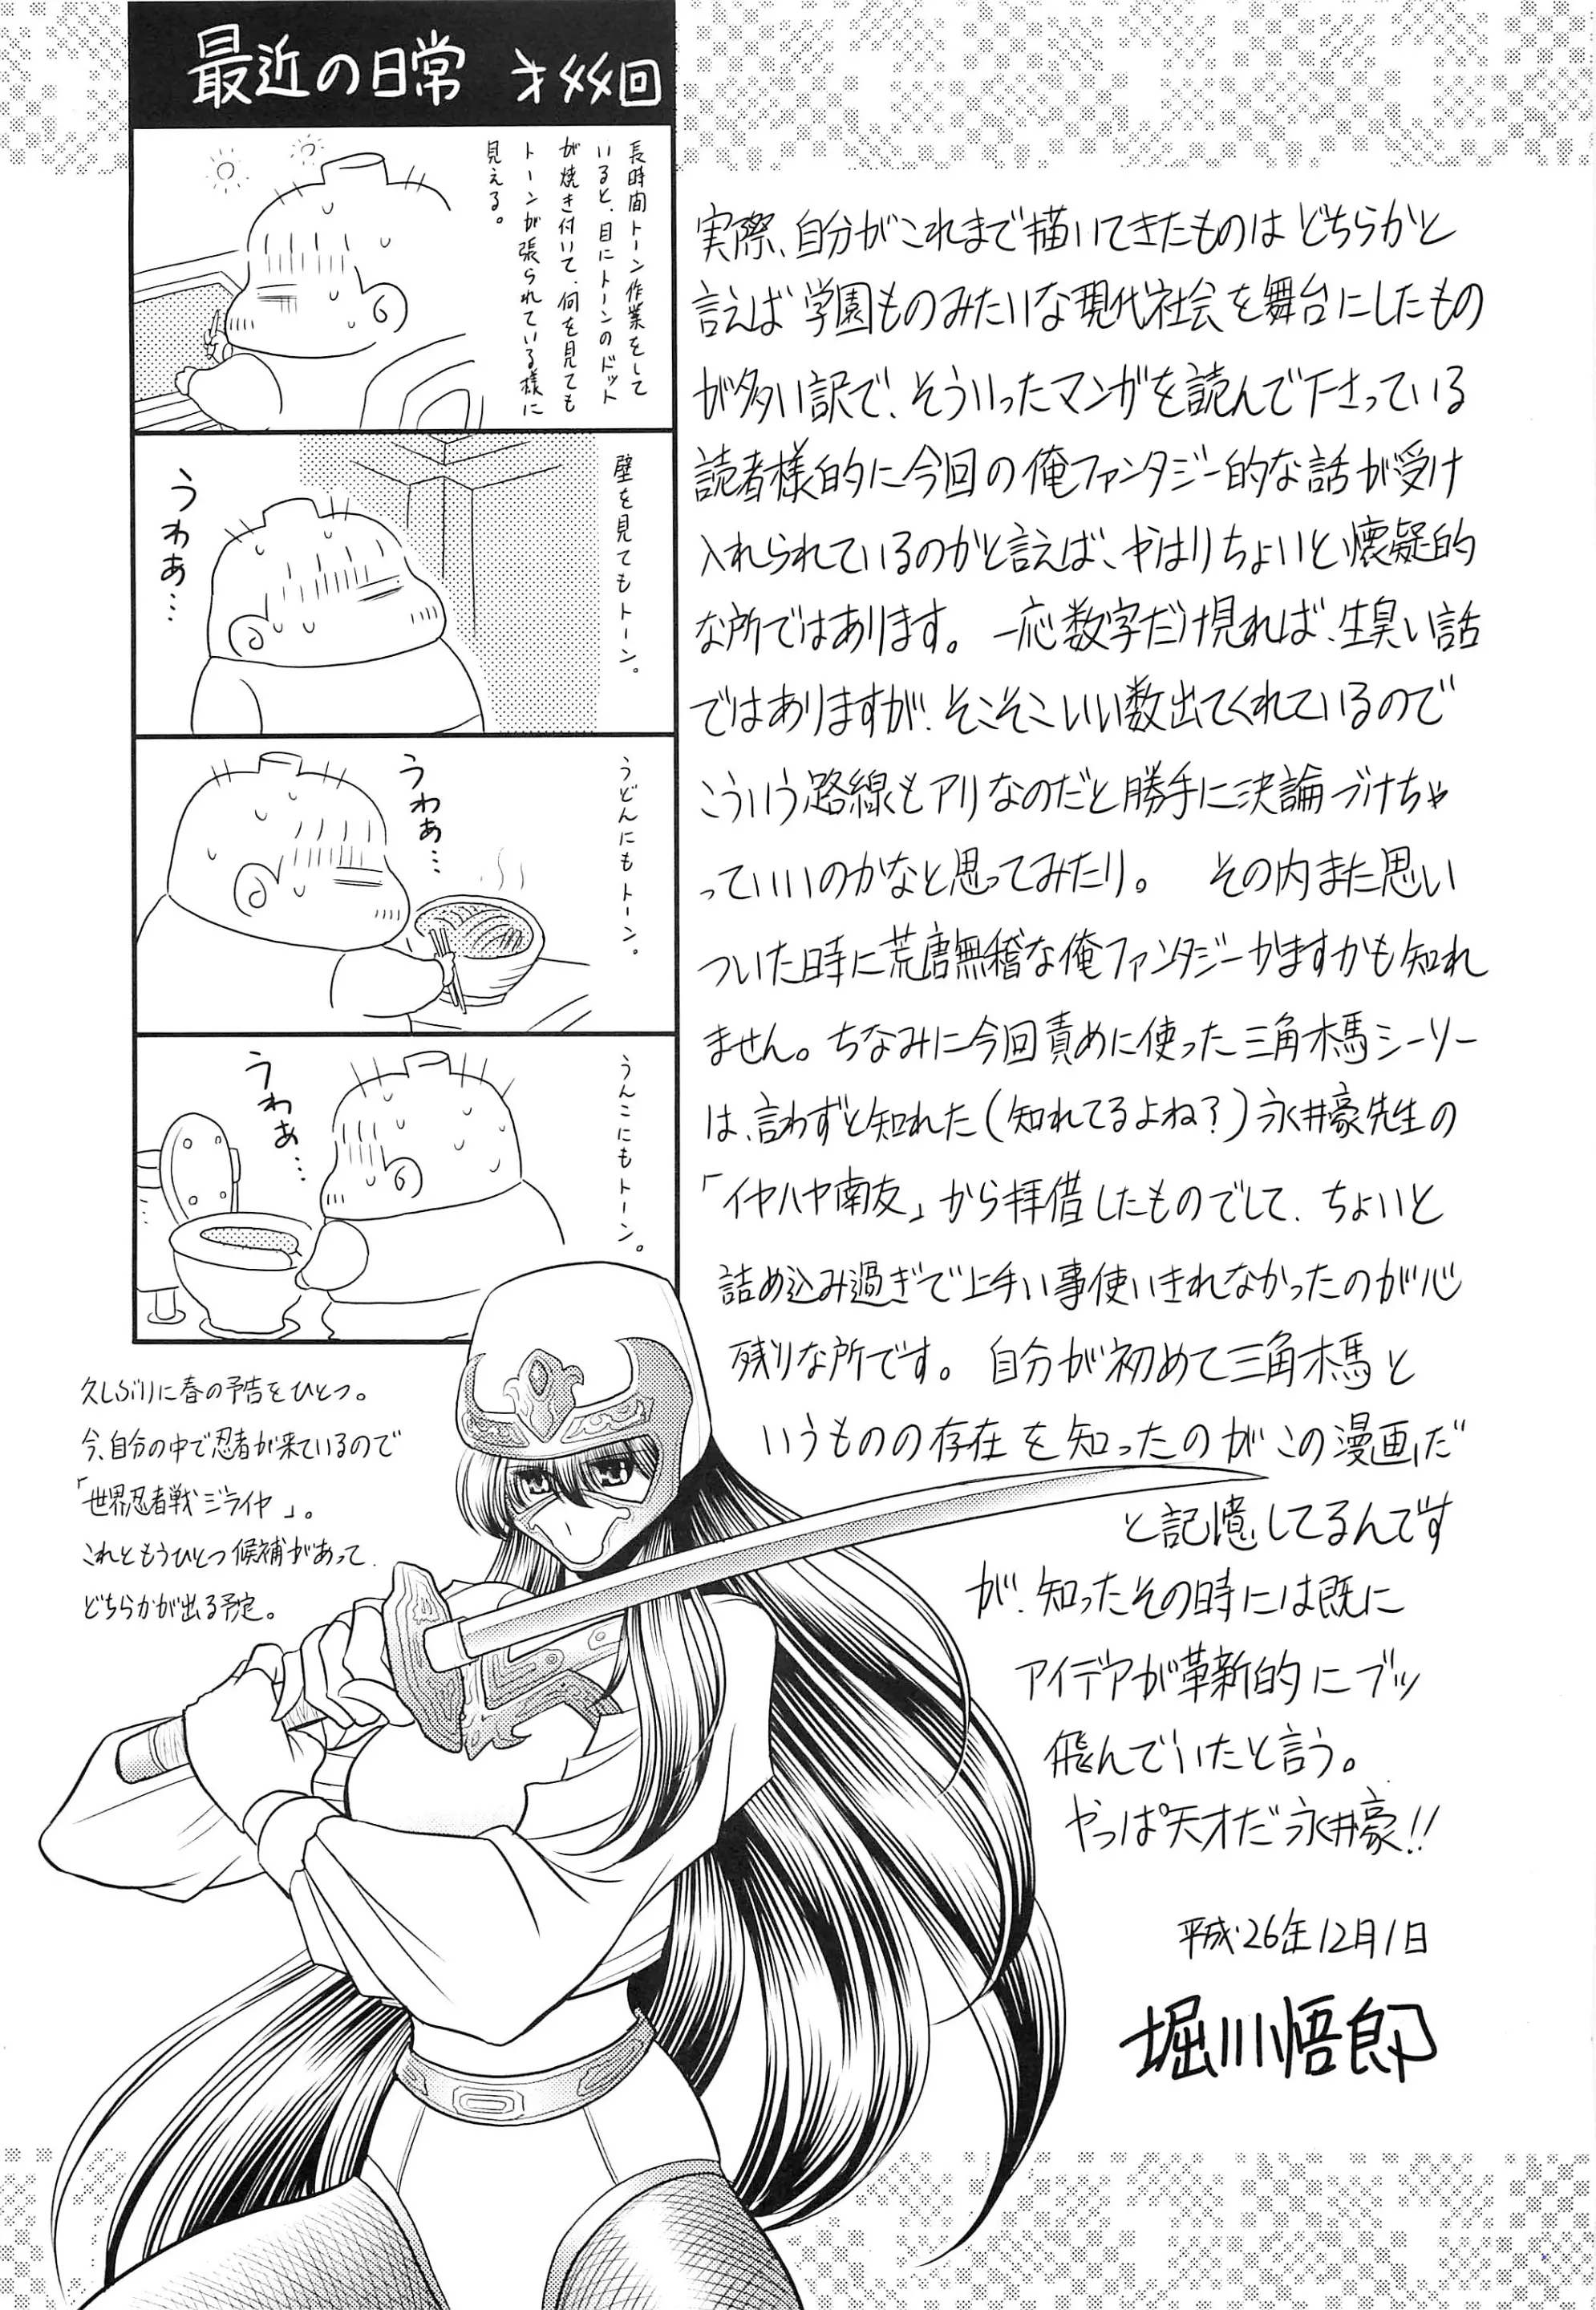 最近の日常 オ㐅㐅回
長時間トーン作業をして
いると、目にトーンのドット
が焼き付いて、何を見ても
トーンが張られている様に
見える。
壁を見てもトーン。
うわぁ…
うどんにもトーン。
うわぁ…
うんこにもトーン。
うわぁ…
実際、自分がこれまで描いてきたものはどちらかと
言えば学園ものみたいな現代社会を舞台にしたもの
が多い訳で、そういったマンガを読んで下さっている
読者様的に今回の俺ファンタジー的な話が受け
入れられているのかと言えば、やはりちょいと懐疑的
な所ではあります。一応数字だけ見れば、生臭い話
ではありますが、そこそこいい数出てくれているので
こういう路線もアリなのだと勝手に決論づけちゃ
っていいのかなと思ってみたり。 その内また思い
ついた時に荒唐無稽な俺ファンタジーかますかも知れ
ません。ちなみに今回責めに使った三角木馬シーソー
は、言わずと知れた(知れてるよね?)永井豪先生の
「イヤハヤ南友」から拝借したものでして、ちょいと
詰め込み過ぎで上手い事使いきれなかったのが心
残りな所です。自分が初めて三角木馬と
いうものの存在を知ったのがこの漫画だ
と記憶してるんです
が、知ったその時には既に
アイデアが革新的にブッ
飛んでいたと言う。
やっぱ天才だ永井豪!!
平成26年12月1日
堀川悟郎
久しぶりに春の予告をひとつ。
今、自分の中で忍者が来ているので
「世界忍者戦ジライヤ」。
これともうひとつ候補があって、
どちらかが出る予定。